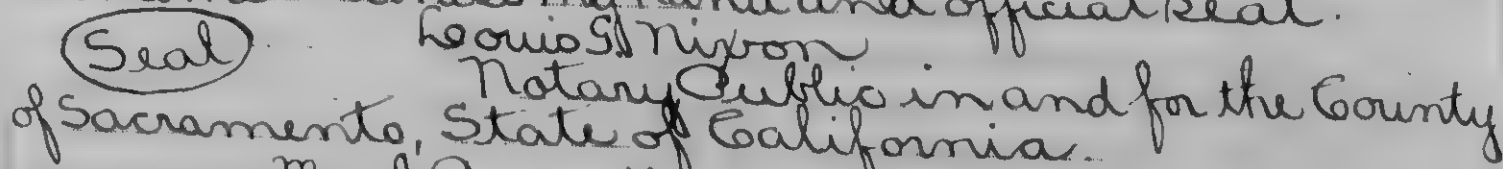 my hand and official seal.
Seal Louis G. Nixon
Notary Public in and for the County
of Sacramento, State of California.